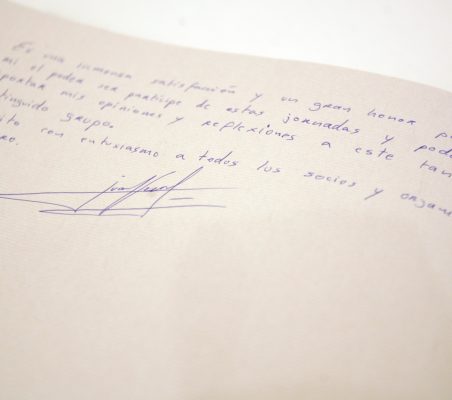 Es una inmensa satisfacción y un gran honor p
mi el poder ser partícipe de estas jornadas y pod
portar mis opiniones y reflexiones a este tan
tinguido grupo.
ito con entusiasmo a todos los socios y organi
ro.